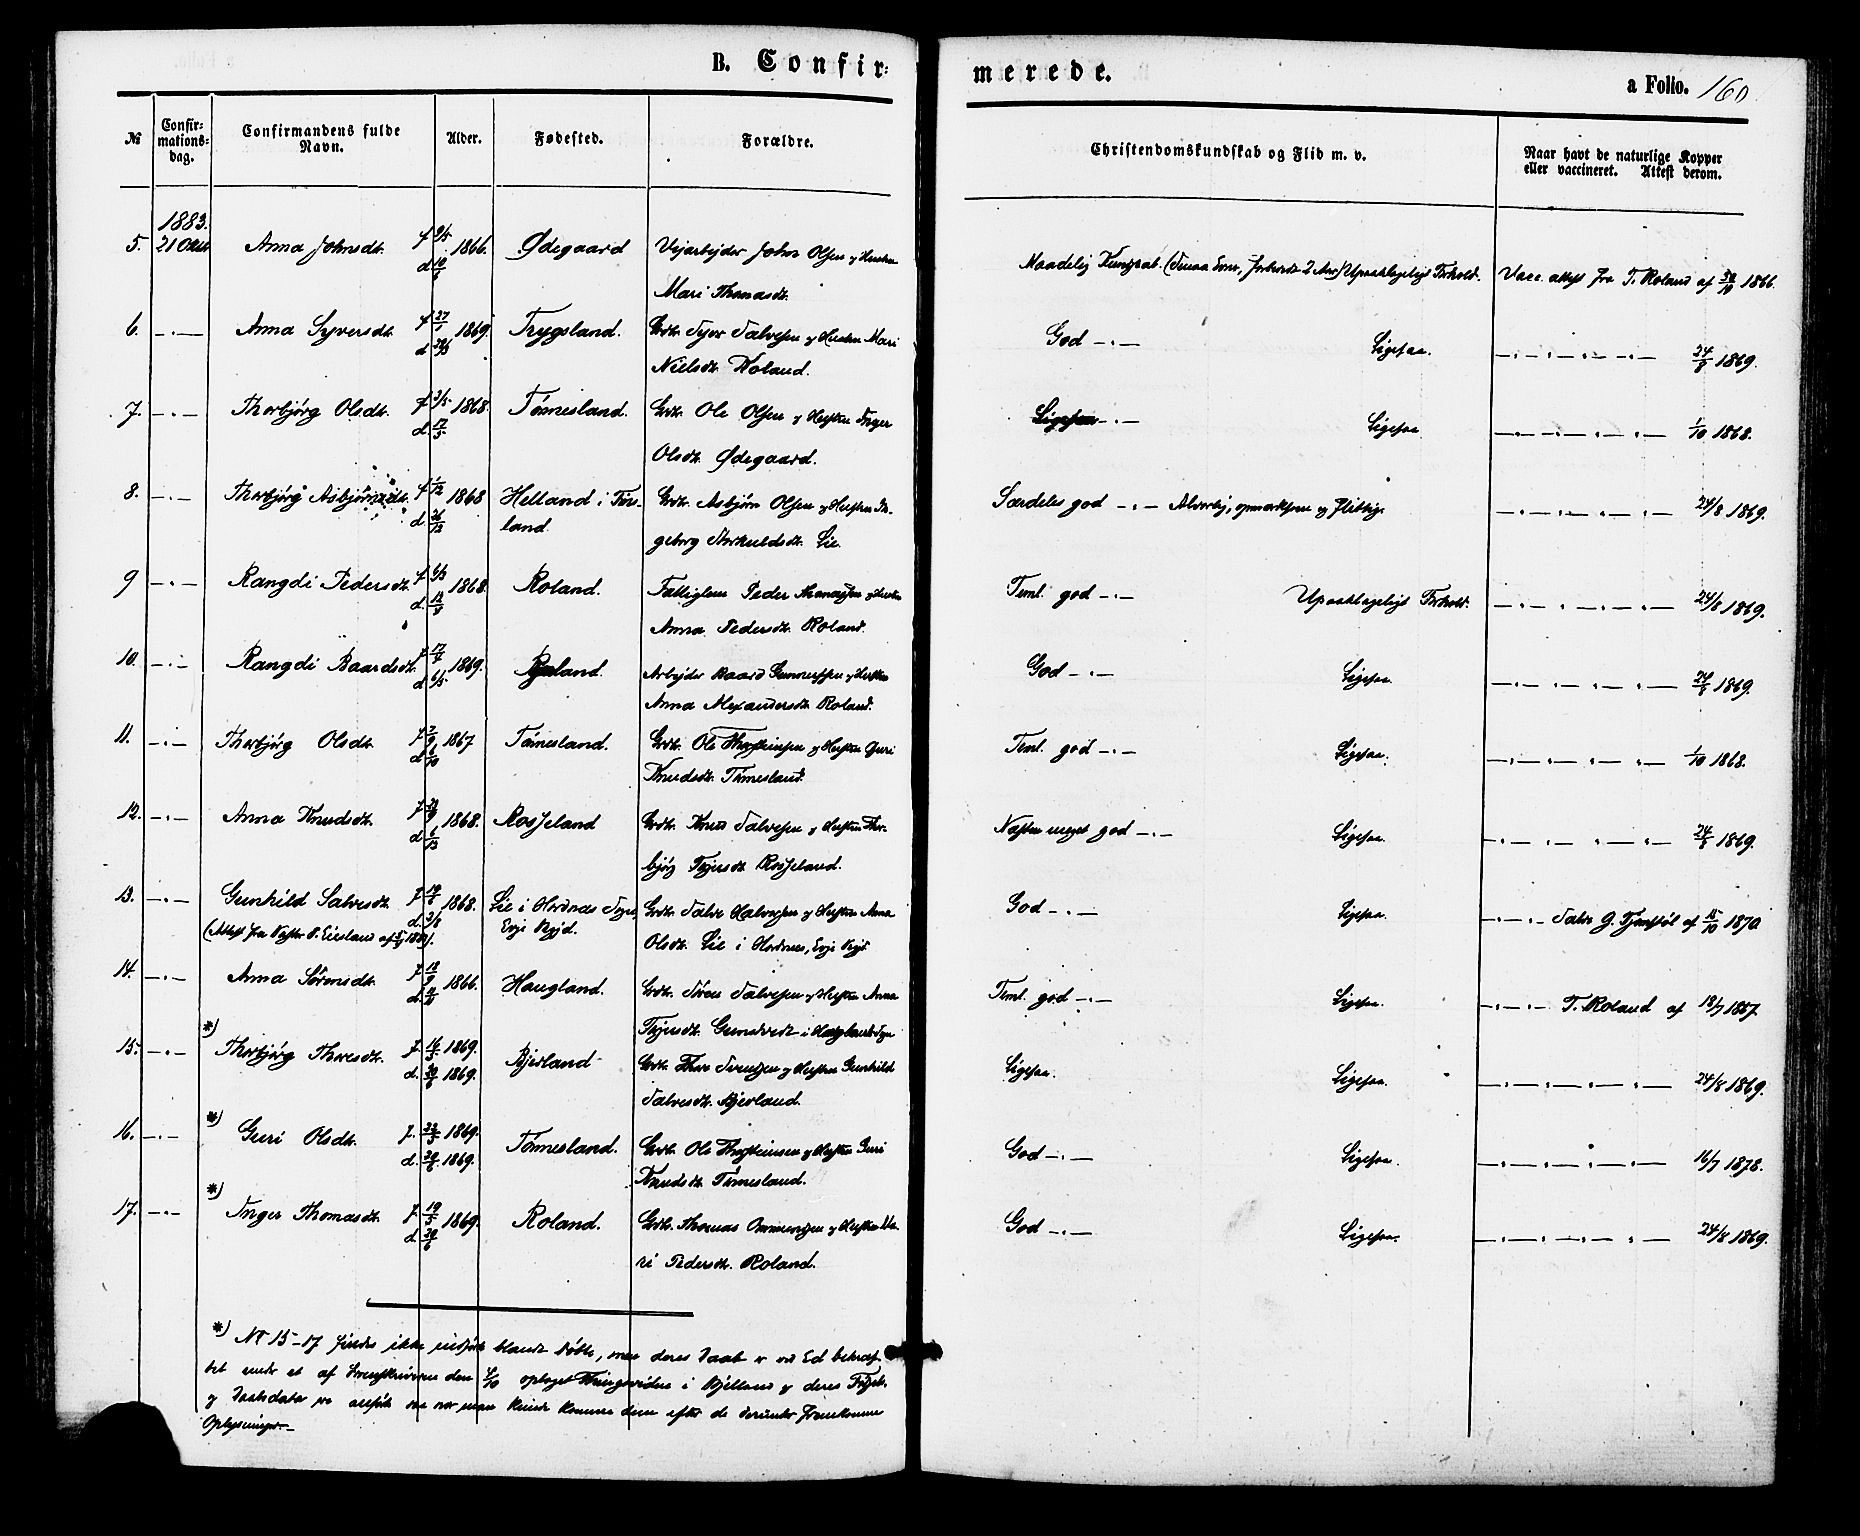 B. Confir-
merede.
a Folio. 160
№
Confir-
mations-
dag.
Confirmandens fulde
Navn.
Alder.
Fødested.
Forældre.
Christendomskundskab og Flid m. v.
Naar havt de naturlige Kopper
eller vaccineret. Attest derom.
1883.
5. 21 Oktb Anna Johnsdt. f 9/5 1866. Ødegaard Vejarbejder John Olsen og Hustru
d
Mari Thomasdt.
Maadelig Kundskab. 2 Aar) Upaaklageligt Forhold. Vacc. attest fra T. Roland af 1866.
6. —„— Anna Syversdt. f 27/1 1869. Trygsland. Grdbr. Syver Salvesen og Hustru Mari
d
Nielsdt. Roland.
God —„— Ligesaa. —„—„—„— 24/8 1869.
7. —„— Thorbjörg Olsdt. f 2/5 1868. Tönnesland. Grdbr. Ole Olsen og Hustru Inger
d. 17/5
Olsdt. Ødegaard.
Ligesaa —„— Ligesaa —„—„—„— 1/10 1868.
8. —„— Thorbjörg Asbjörnsdt. f 1/12 1868 Helland i Föres- Grdbr. Asbjörn Olsen og Hustru In-
d 26/12 land.
geborg Thorkeldsdt. Lie.
Særdeles god —„— Alvorlig, opmærksom og flittig. —„—„—„— 24/8 1869.
9 —„— Rangdi Pedersdt. f 6/3 1868. Roland. Fattiglem Peder Thomassen og Hustru
d.
Anna Pedersdt. Roland.
Teml. god —„— Upaaklageligt Forhold. —„—„—„— 24/8 1869.
10. —„— Rangdi Baardsdt. f. 1869. land. Arbejder Baard Gunnersen og Hustru
d 6/5
Anna Alexandersdt. Roland.
God —„— Ligesaa. —„—„—„— 24/8 1869.
11. —„— Thorbjörg Olsdt. f 2/9 1867 Tönnesland. Grdbr. Ole Thorsteinsen og Hustru Guri
d 6/10
Knudsdt. Tönnesland.
Teml. god —„— Ligesaa. —„—„—„— 1/10 1868.
12. —„— Anna Knudsdt. f 1868. Rosseland Grdbr. Knud Salvesen og Hustru Thor-
d
björg Terjersdt. Rosseland.
Næsten meget god —„— Ligesaa. —„—„—„— 24/8 1869.
13. —„— Gunhild Salvesdt. f. 1868. Lie i Hordnæs Sogn, Grdbr. Salve Halvorsen og Hustru Anna
d. 2/8 Evje Bygd.
(Attest fra Præsten P. Eieland af 1883). Olsdt. Lie i Hordnes, Evje Bygd
God —„— Ligesaa. —„—„— Salve G. af 15/10 1870
14. —„— Anna Sörensdt. f 18/9 1866. Haugland. Grdbr. Sören Salvesen og Hustru Anna
d.
Terjersdt. Gunstvedt i
Teml. god —„— Ligesaa. —„—„— T. Roland af 18/7 1867.
*)
15. —„— Thorbjörg Thoresdt. f. 16/3 1869. Bjerland Grdbr. Thore Svensen og Hustru Gunhild
d. 20/6 1869.
Salvesdt. Bjerland.
Ligesaa. Ligesaa. —„—„—„— 24/8 1869.
*)
16. —„— Guri Olsdt. f. 23/3 1869. Tönnesland. Grdbr. Ole Thorsteinsen og Hustru Guri
d. 20/6 1869.
Knudsdt. Tönnesland.
God —„— Ligesaa. —„—„—„— 16/7 1878.
*)
17. —„— Inger Thomasdt. f. 19/5 1869. Roland. Grdbr. Thomas Ommundsen og Hustru Ma-
d. 20/6
ri Pedersdt. Roland.
God —„— Ligesaa. —„—„—„— 24/8 1869.
*) № 15-17 findes ikke indført blandt döbte, men deres Daab er ved Ed bekræf-
tet under et af Sorenskriveren den 4/10 optaget Thingsvidne i Bjelland og deres Föds.
og Daabsdata er anført saa nær man kunde komme dem efter de derunder fremkomne
Oplysninger.—